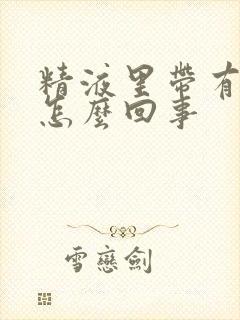 精液里帶有
怎麼回事
雪戀劍